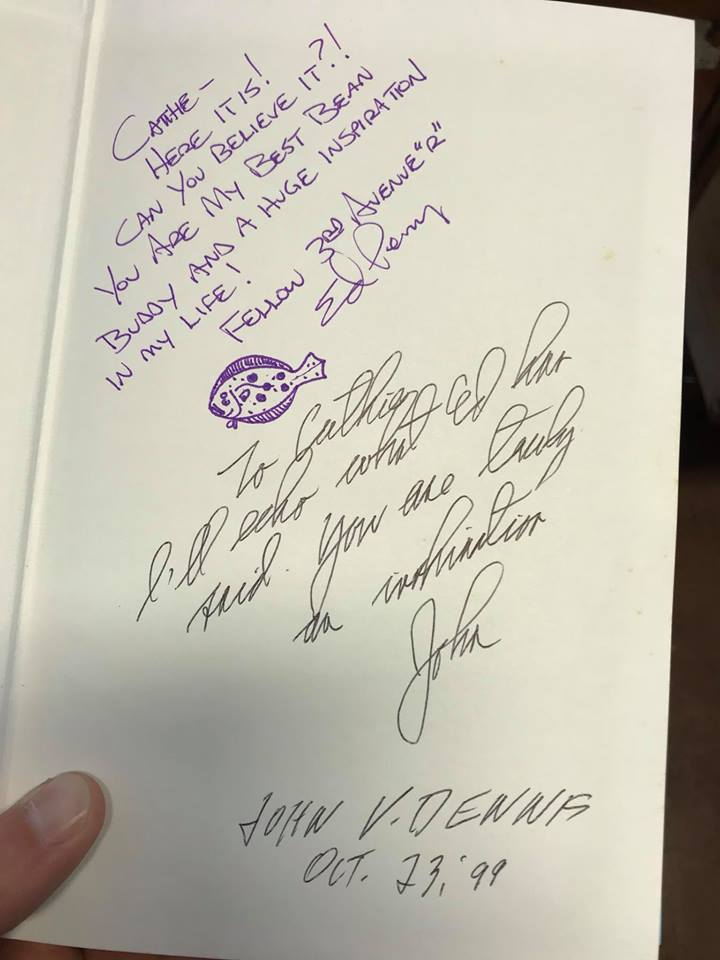 CATHIE-
HERE IT IS!
CAN YOU BELIEVE IT?!
YOU ARE MY BEST BEAN
BUDDY AND A HUGE INSPIRATION
IN MY LIFE!
FELLOW 3RD AVENUE "R"
Ed Perry
To Cathie
I'll echo what Ed has
said. You are truly
an inspiration
John
JOHN V. DENNIS
OCT. 23, '99